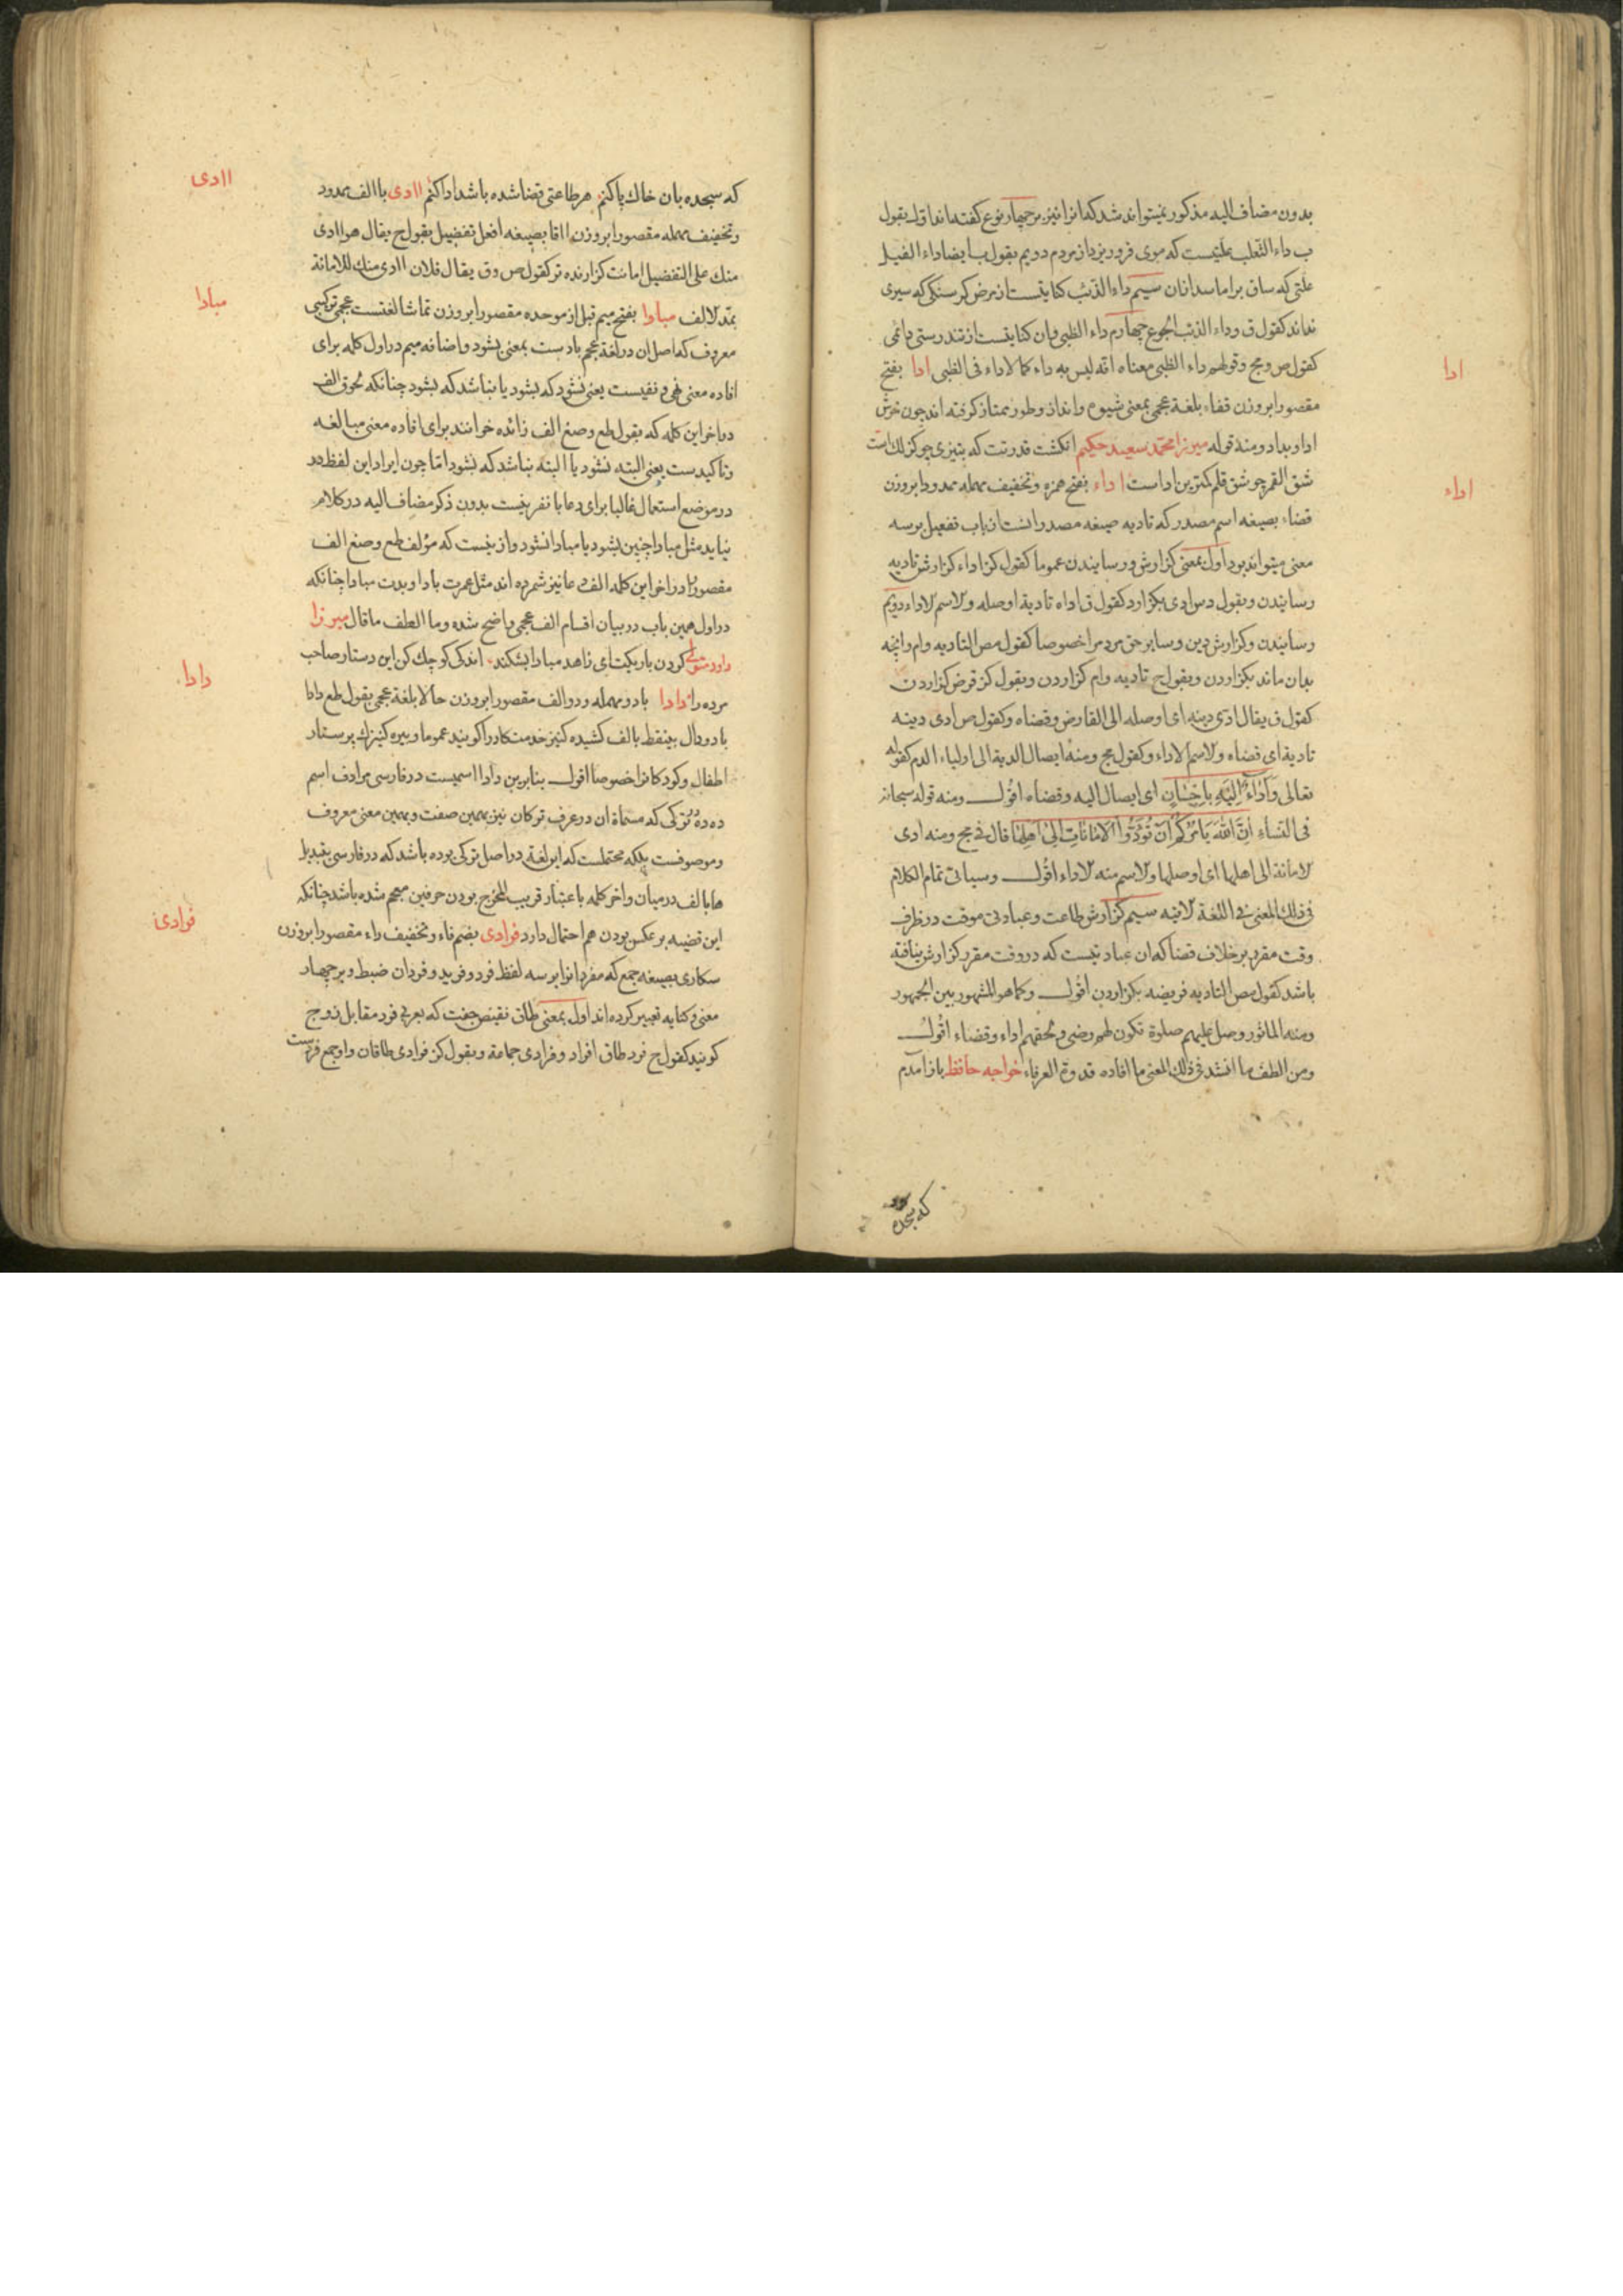 بدون مضاف الیه مذکور نمیتواند شد که انرا نیز بر چهار نوع گفته‌اند اوّل بقول
ب داء الثعلب علتیست که موی فرو ریزد از مردم دویم بقول ب ایضا داء الفیل
علتی که ساق بر اماسد از ان سیم داء الذئب کنایتست از مرض کرسنکی که سیری
نداند کقول ق وداء الذئب الجوع چهارم داء الظبی وان کنایتست از تندرستی دائمی
کقول ص ومج وقولهم داء الظبی معناه انّه لیس به داء کما لا داء فی الظبی ادا بفتح
ادا
مقصورا بروزن قفاء بلغة عجمی بمعنی شیوه وانداز وطور ممتاز کرفته اند چون خوش
ادا وبد ادا ومنه قوله میرزا محمّد سعید حکیم انکشت قدرتت که بتیزی چو کزلک است
شق القمر چو شق قلم کمترین اداست اداء بفتح همزه وتخفیف مهمله ممدودا بروزن
اداء
قضاء بصیغه اسم مصدر که تادیه صیغه مصدر انست از باب تفعیل بر سه
معنی میتواند بود اول بمعنی کزارش ورسانیدن عموما کقول کز اداء کزارش تادیه
رسانیدن وبقول دس ادی بکزارد کقول ق اداه تادیة اوصله والاسم الاداء دویم
رسانیدن وکزارش دین وسایر حق مردم را خصوصا کقول مص التادیه وام وانچه
بدان ماند بکزاردن وبقول ح تادیه وام کزاردن وبقول کز قرض کزاردن
کقول ق یقال ادّی دینه ای اوصله الی القارض وقضاه وکقول ص ادی دینه
تادیة ای قضاه والاسم الاداء وکقول مج ومنه ایصال الدیة الی اولیاء الدم کقوله
تعالی وَاَدَاءٌ اِلَیْهِ بِاِحْسَانٍ ای ایصال الیه وقضاه اقول ومنه قوله سبحانه
فی النساء اِنَّ اللهَ یَأْمُرُکُمْ اَنْ تُؤَدُّوا الْاَمَانَاتِ اِلیٰ اَهْلِهَا قال فی مج ومنه ادی
الامانة الی اهلها ای اوصلها والاسم منه الاداء اقول وسیاتی تمام الکلام
فی ذلک المعنی فی اللغة الاتیه سیم کزارش طاعت وعبادتی موقت در ظرف
وقت مقرر بر خلاف قضا که ان عبادتیست که در وقت مقرر کزارش نیافته
باشد کقول مص التادیه فریضه بکزاردن اقول وکما هو المشهور بین الجمهور
ومنه الماثور وصل علیهم صلوة تکون لهم رضی ولحقهم اداء وقضاء اقول
ومن الطف ما انشد فی ذلک المعنی ما افاده قدوة العرفاء خواجه حافظ باز آمدم
که سجده
که سجده بان خاك پا کنم هر طاعتی قضا شده باشد ادا کنم اادی با الف ممدود
اادی
وتخفیف مهمله مقصورا بروزن ااقا بصیغه افعل تفضیل بقول ح یقال هو اادی
منك علی التفضیل امانت کزارنده تر کقول ص وق یقال فلان اادی منك للامانة
بمدّ الالف مبادا بفتح میم قبل از موحده مقصورا بروزن تماشا لغتست عجمی ترکیبی
مبادا
معروف که اصل ان در لغة عجم بادست بمعنی بشود واضافه میم در اول کلمه برای
افاده معنی نهی ونفیست یعنی نشود که بشود یا نباشد که بشود چنانکه لحوق الف
در اخر این کلمه که بقول طع وصغ الف زائده خوانند برای افاده معنی مبالغه
وتاکیدست یعنی البته نشود یا البته نباشد که بشود امّا چون ایراد این لفظ در
در موضع استعمال غالبا برای دعا یا نفرینست بدون ذکر مضاف الیه در کلام
نیاید مثل مبادا چنین بشود یا مبادا نشود وازینست که مؤلف طع وصغ الف
مقصور را در اخر این کلمه الف دعا نیز شمرده اند مثل عمرت بادا وبدت مبادا چنانکه
در اول همین باب در بیان اقسام الف عجمی واضح شده وما الطف ما قال میرزا
داود متولّی کردن باریکت ای زاهد مبادا بشکند اندکی کوچك کن این دستار صاحب
مرده را دادا با دو مهمله ودو الف مقصورا بروزن حالا بلغة عجمی بقول طع دادا
دادا
با دو دال بینقط بالف کشیده کنیز خدمتکار را کویند عموما وپیره کنیزك پرستار
اطفال وکودکانرا خصوصا اقول بنابرین دادا اسمیست در فارسی مرادف اسم
ده ده ترکی که مسماة ان در عرف ترکان نیز بهمین صفت وبهمین معنی معروف
وموصوفست بلکه محتملست که این لغة در اصل ترکی بوده باشد که در فارسی بتبدیل
ها بالف در میان واخر کلمه باعتبار قریب المخرج بودن حرفین معجم شده باشد چنانکه
این قضیه بر عکس بودن هم احتمال دارد فرادی بضم فاء وتخفیف راء مقصورا بروزن
فرادی
سکاری بصیغه جمع که مفرد انرا بر سه لفظ فرد وفرید وفردان ضبط وبر چهار
معنی وکنایه تعبیر کرده اند اول بمعنی طاق نقیض جفت که بعربی فرد مقابل زوج
کویند کقول ح فرد طاق افراد وفرادی جماعة وبقول کز فرادی طاقان واو جمع فردست